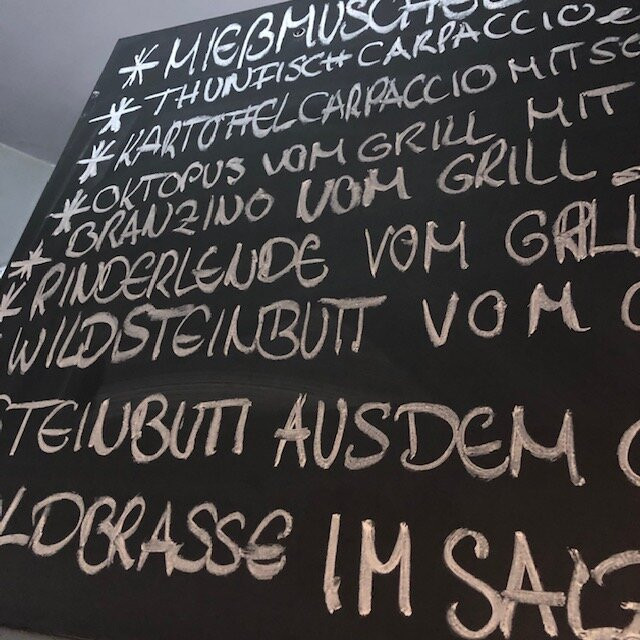 * MIEßMUSCHEL
* THUNFISCHCARPACCIO
* KARTOFFELCARPACCIO MIT SC
* OKTOPUS VOM GRILL MIT
* BRANZINO VOM GRILL
* RINDERLENDE VOM GRILL
* WILDSTEINBUTT VOM G
STEINBUTT AUS DEM O
LDBRASSE IM SALZ